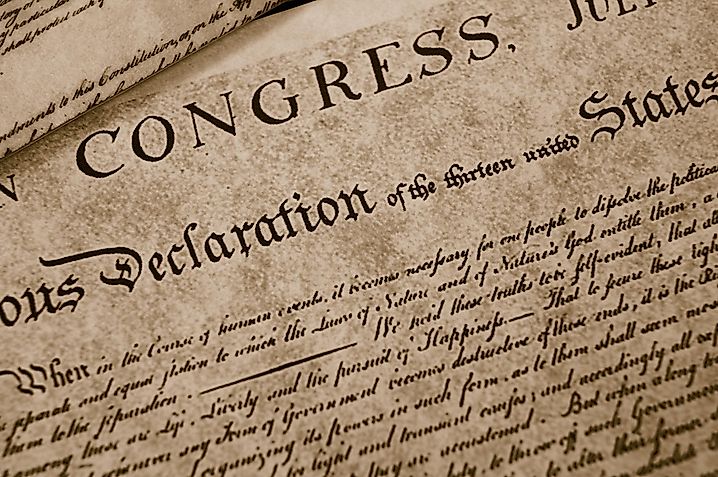 this Constitution, or, on the
N CONGRESS, JUL
ous Declaration of the thirteen united States
When in the Course of human events, it becomes necessary for one people to dissolve the politica
separate and equal station to which the Laws of Nature and of Nature's God entitle them, a
them to the separation. We hold these truths to be self-evident, that all
among these are Life, Liberty and the pursuit of Happiness.— That to secure these righ
any Form of Government becomes destructive of these ends, it is the
organizing its powers in such form, as to them shall seem mos
for light and transient causes; and accordingly all
they are accustomed. But when a long
to throw off such Government
to alter their former